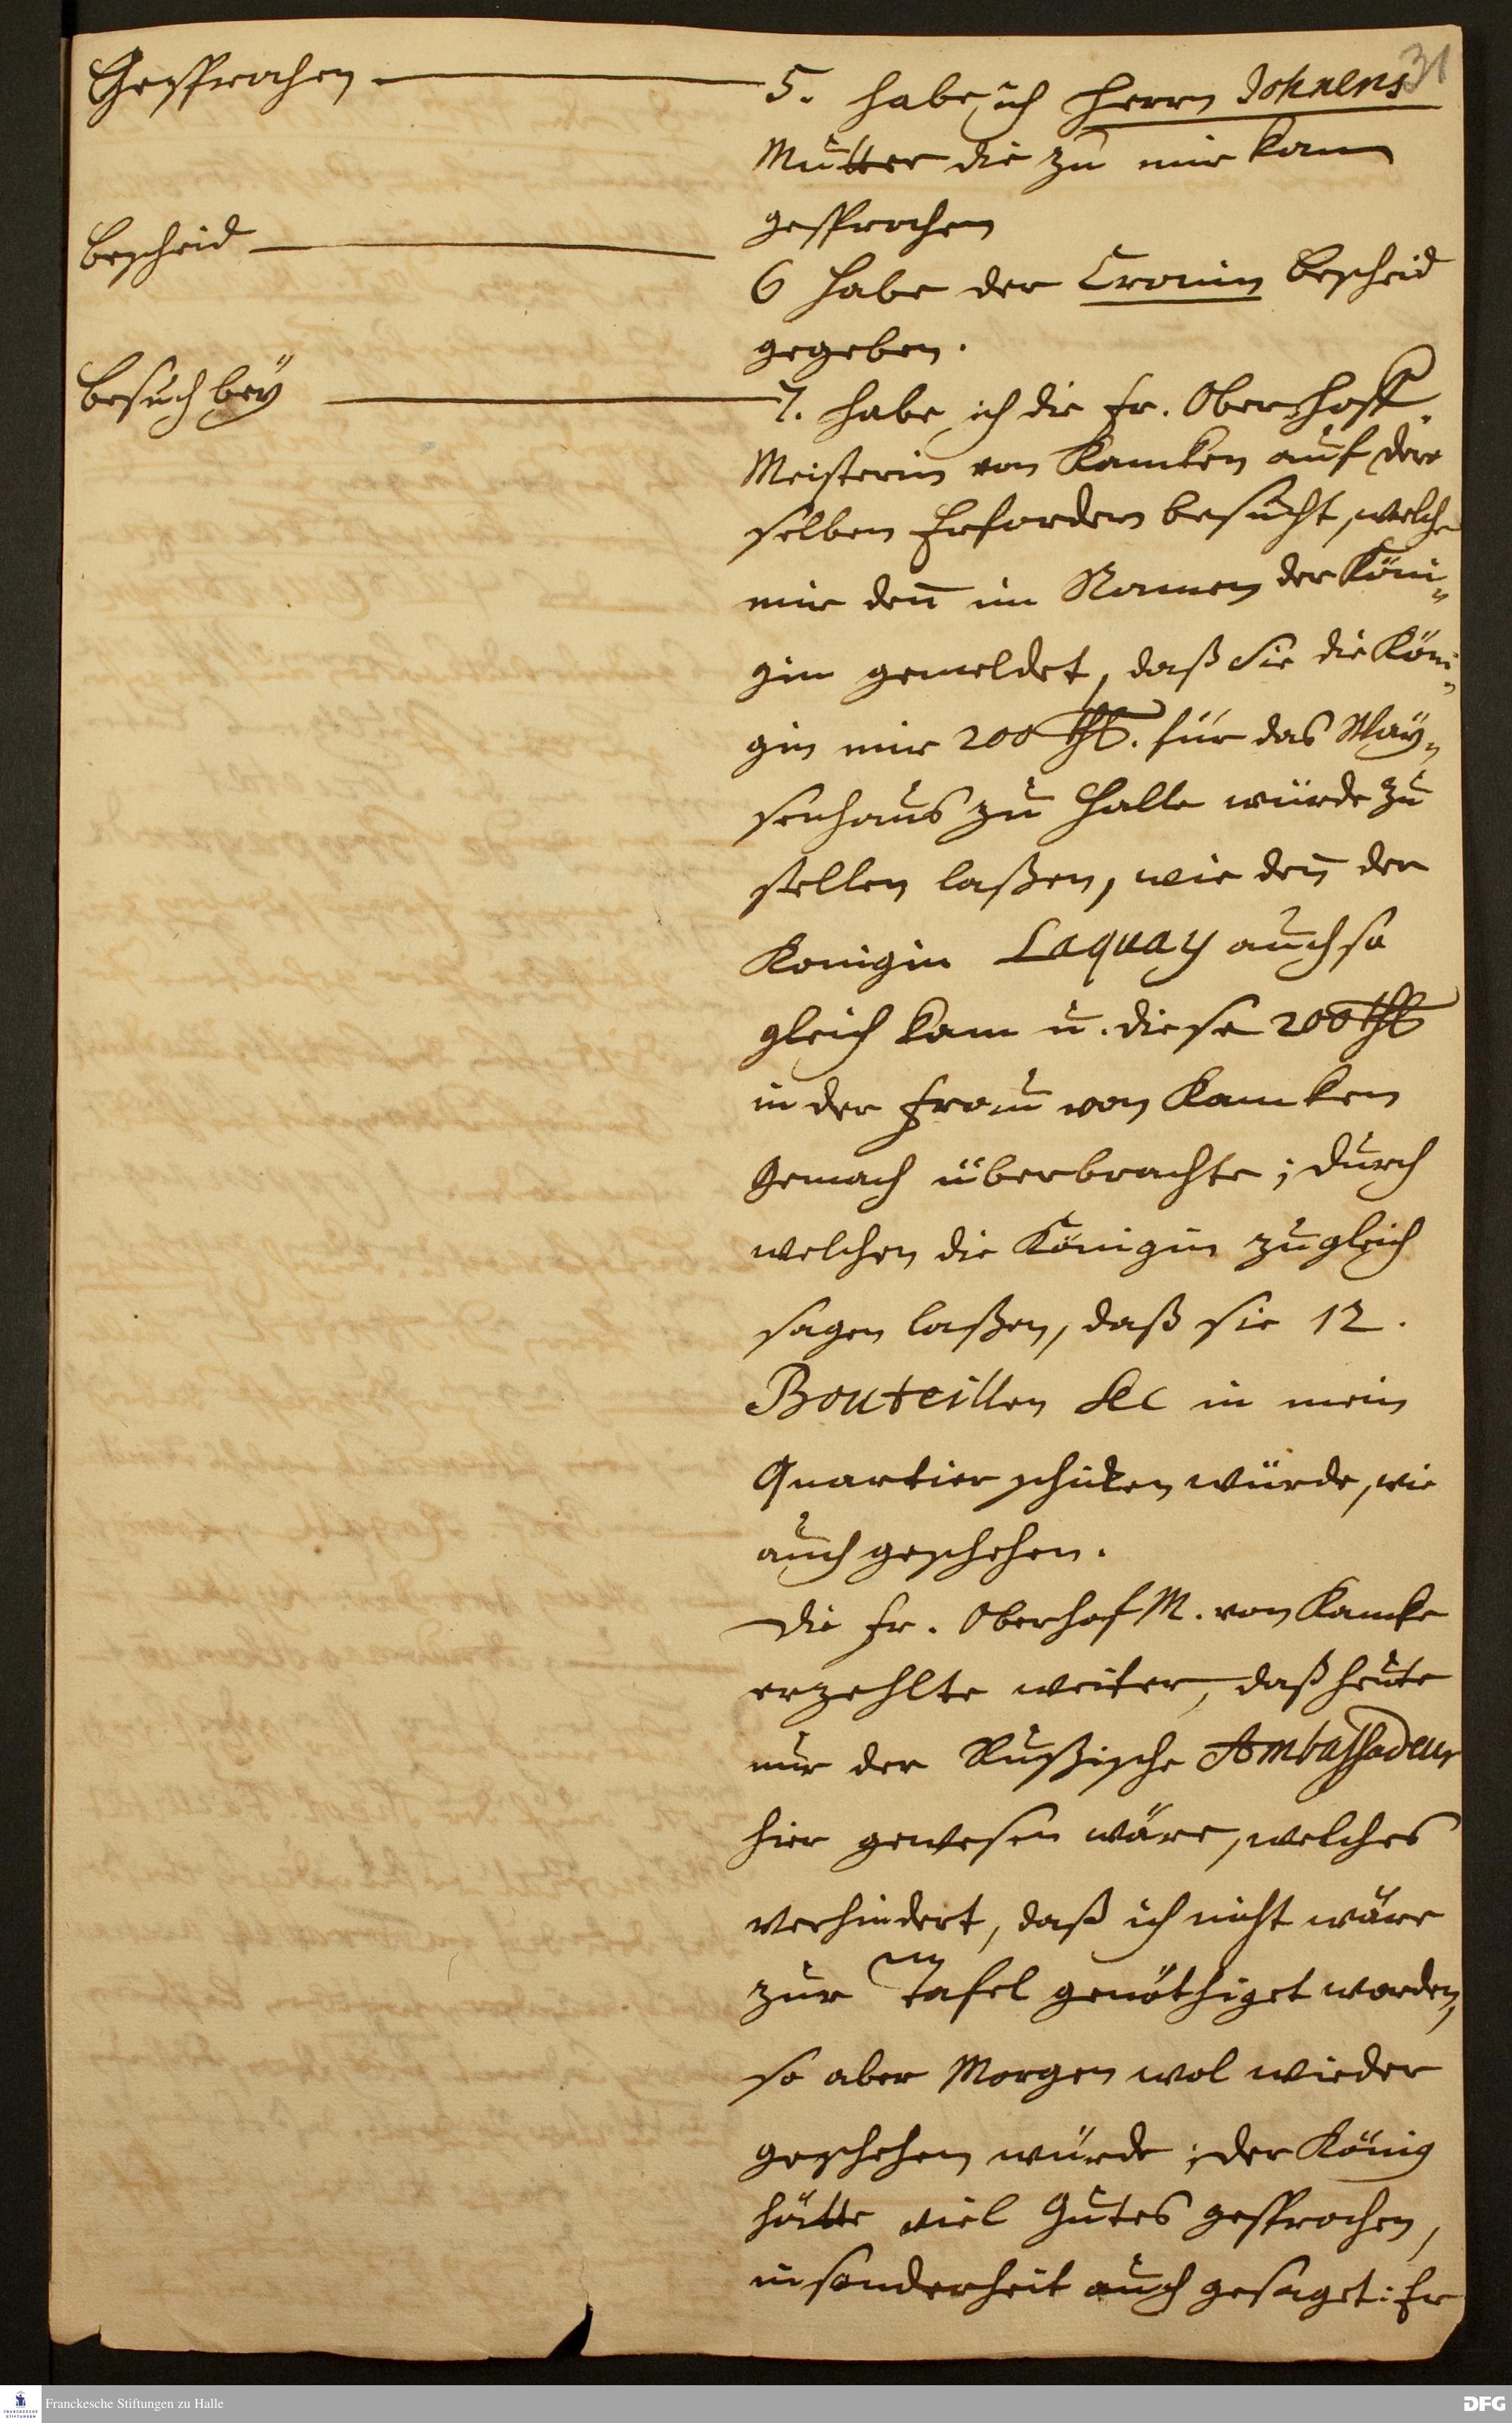 31
Gesprochen
5. habe ich Herrn Johnens
Mutter die zu mir kam
gesprochen
Bescheid
6 habe der Cronin Bescheid
gegeben.
Besuch bey
7. habe ich die Fr. Ober-Hoff-
Meisterin von Kamken auf der
selben Erfordern besucht, welche
mir den̄ im Namen der Köni-
gin gemeldet, daß Sie die Köni-
gin mir 200 thl. für das Way-
senhaus zu Halle würde zu
stellen laßen, wie den̄ der
Konigin Laquay auch so
gleich kam u. diese 200 thl
in der Frau von Kamken
Gemach überbrachte; durch
welchen die Königin zugleich
sagen laßen, daß sie 12.
Bouteillen Sec in mein
Quartier schicken würde, wie
auch geschehen.
Die Fr. Oberhof M. von Kamke
erzehlte weiter, daß heute
nur der Rußische Ambassadeur
hier gewesen wäre, welches
verhindert, daß ich nicht wäre
zur Tafel genöthiget worden,
so aber Morgen wol wieder
geschehen würde; der König
hätte viel Gutes gesprochen,
insonderheit auch gesaget: Er
Franckesche Stiftungen zu Halle
DFG